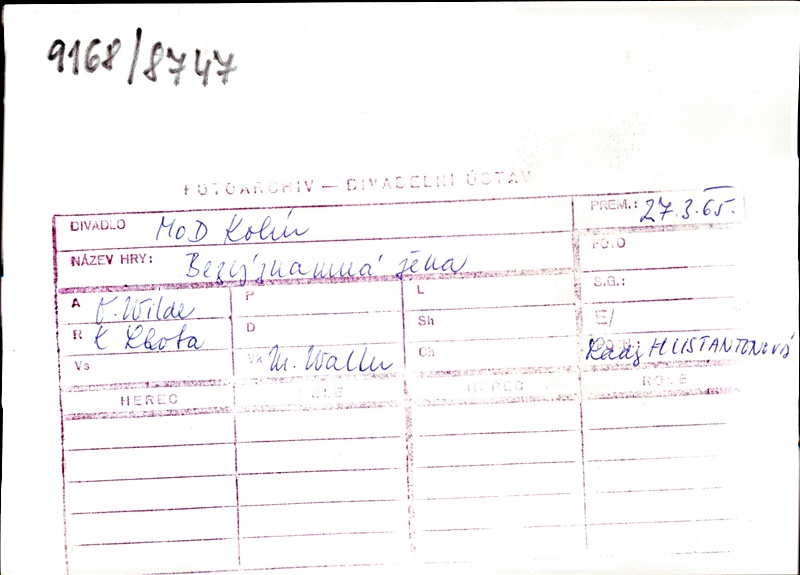 9168/8747
FOTOARCHIV — DIVADELNÍ ÚSTAV
DIVADLO MOD Kolín PREM.: 27.3.65.
NÁZEV HRY: Bezvýznamná žena FOTO
A O. Wilde P L S.G.:
R K Lhota D Sh E/
Vs Vk M. Waller Ch Lady HUSTANTONOVÁ
HEREC ROLE HEREC ROLE